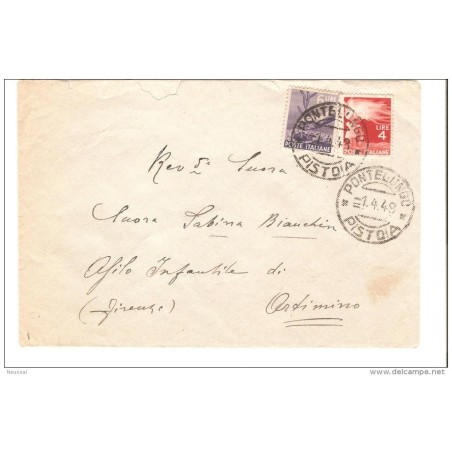 LIRE
4
POSTE ITALIANE
PONTELUNGO
PISTOIA
PONTELUNGO
1.4.49
PISTOIA
Rev da Suora
Suora Sabina Bianchin
Asilo Infantile di
(Firenze) Artimino
Neussal
delcampe.net